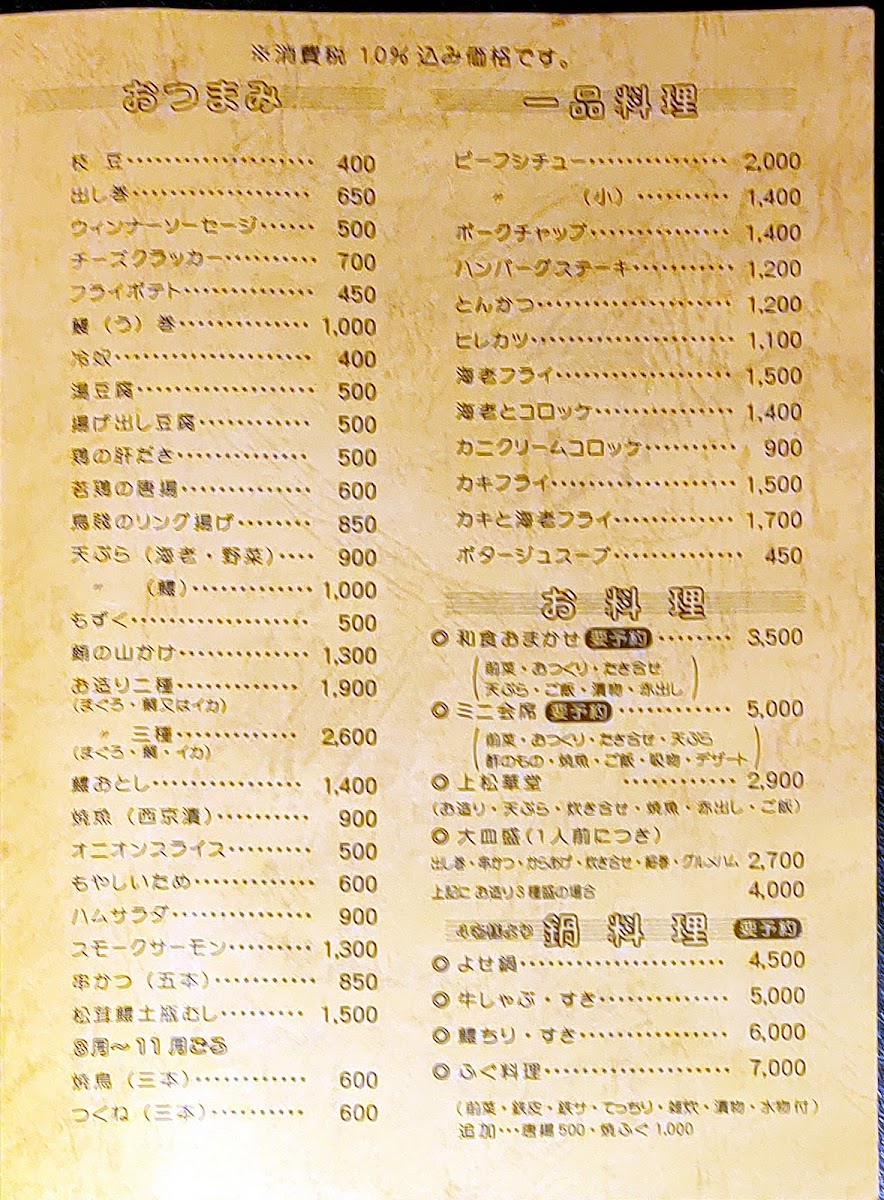 ※消費税 10% 込み価格です。
おつまみ
枝豆 400
出し巻 650
ウィンナーソーセージ 500
チーズクラッカー 700
フライポテト 450
鰻(う)巻 1,000
冷奴 400
湯豆腐 500
揚げ出し豆腐 500
鶏の肝だき 500
若鶏の唐揚 600
烏賊のリング揚げ 850
天ぷら(海老・野菜) 900
〃 (鱧) 1,000
もずく 500
鮪の山かけ 1,300
お造り二種 1,900
(まぐろ・鯛又はイカ)
〃 三種 2,600
(まぐろ・鯛・イカ)
鱧おとし 1,400
焼魚(西京漬) 900
オニオンスライス 500
もやしいため 600
ハムサラダ 900
スモークサーモン 1,300
串かつ(五本) 850
松茸鱧土瓶むし 1,500
8月〜11月ごろ
焼鳥(三本) 600
つくね(三本) 600
一品料理
ビーフシチュー 2,000
〃 (小) 1,400
ポークチャップ 1,400
ハンバーグステーキ 1,200
とんかつ 1,200
ヒレカツ 1,100
海老フライ 1,500
海老とコロッケ 1,400
カニクリームコロッケ 900
カキフライ 1,500
カキと海老フライ 1,700
ポタージュスープ 450
お料理
◎ 和食おまかせ 要予約 3,500
(前菜・おつくり・たき合せ
天ぷら・ご飯・漬物・赤出し)
◎ ミニ会席 要予約 5,000
(前菜・おつくり・たき合せ・天ぷら
酢のもの・焼魚・ご飯・吸物・デザート)
◎ 上松華堂 2,900
(お造り・天ぷら・炊き合せ・焼魚・赤出し・ご飯)
◎ 大皿盛(1人前につき)
出し巻・串かつ・からあげ・炊き合せ・細巻・グルメハム 2,700
上記に お造り3種盛の場合 4,000
鍋料理 要予約
◎ よせ鍋 4,500
◎ 牛しゃぶ・すき 5,000
◎ 鱧ちり・すき 6,000
◎ ふぐ料理 7,000
(前菜・鉄皮・鉄サ・てっちり・雑炊・漬物・水物付)
追加…唐揚500・焼ふぐ1,000